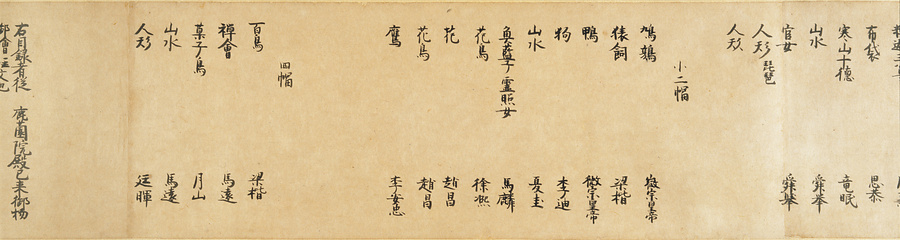 布袋 思恭
寒山十徳 竜眠
山水 舜挙
官女 舜挙
人形 琵琶
人形
小二幅
鳩鶉 徽宗皇帝
猿飼 梁楷
鴨 徽宗皇帝
狗 李迪
山水 夏圭
霊照女 馬麟
花鳥 徐熙
花 趙昌
花鳥 趙昌
鷹 李安忠
四幅
百鳥 梁楷
禅會 馬遠
菓子鳥 月山
山水 馬遠
人形 廷暉
右目録者従 鹿薗院殿已来御物